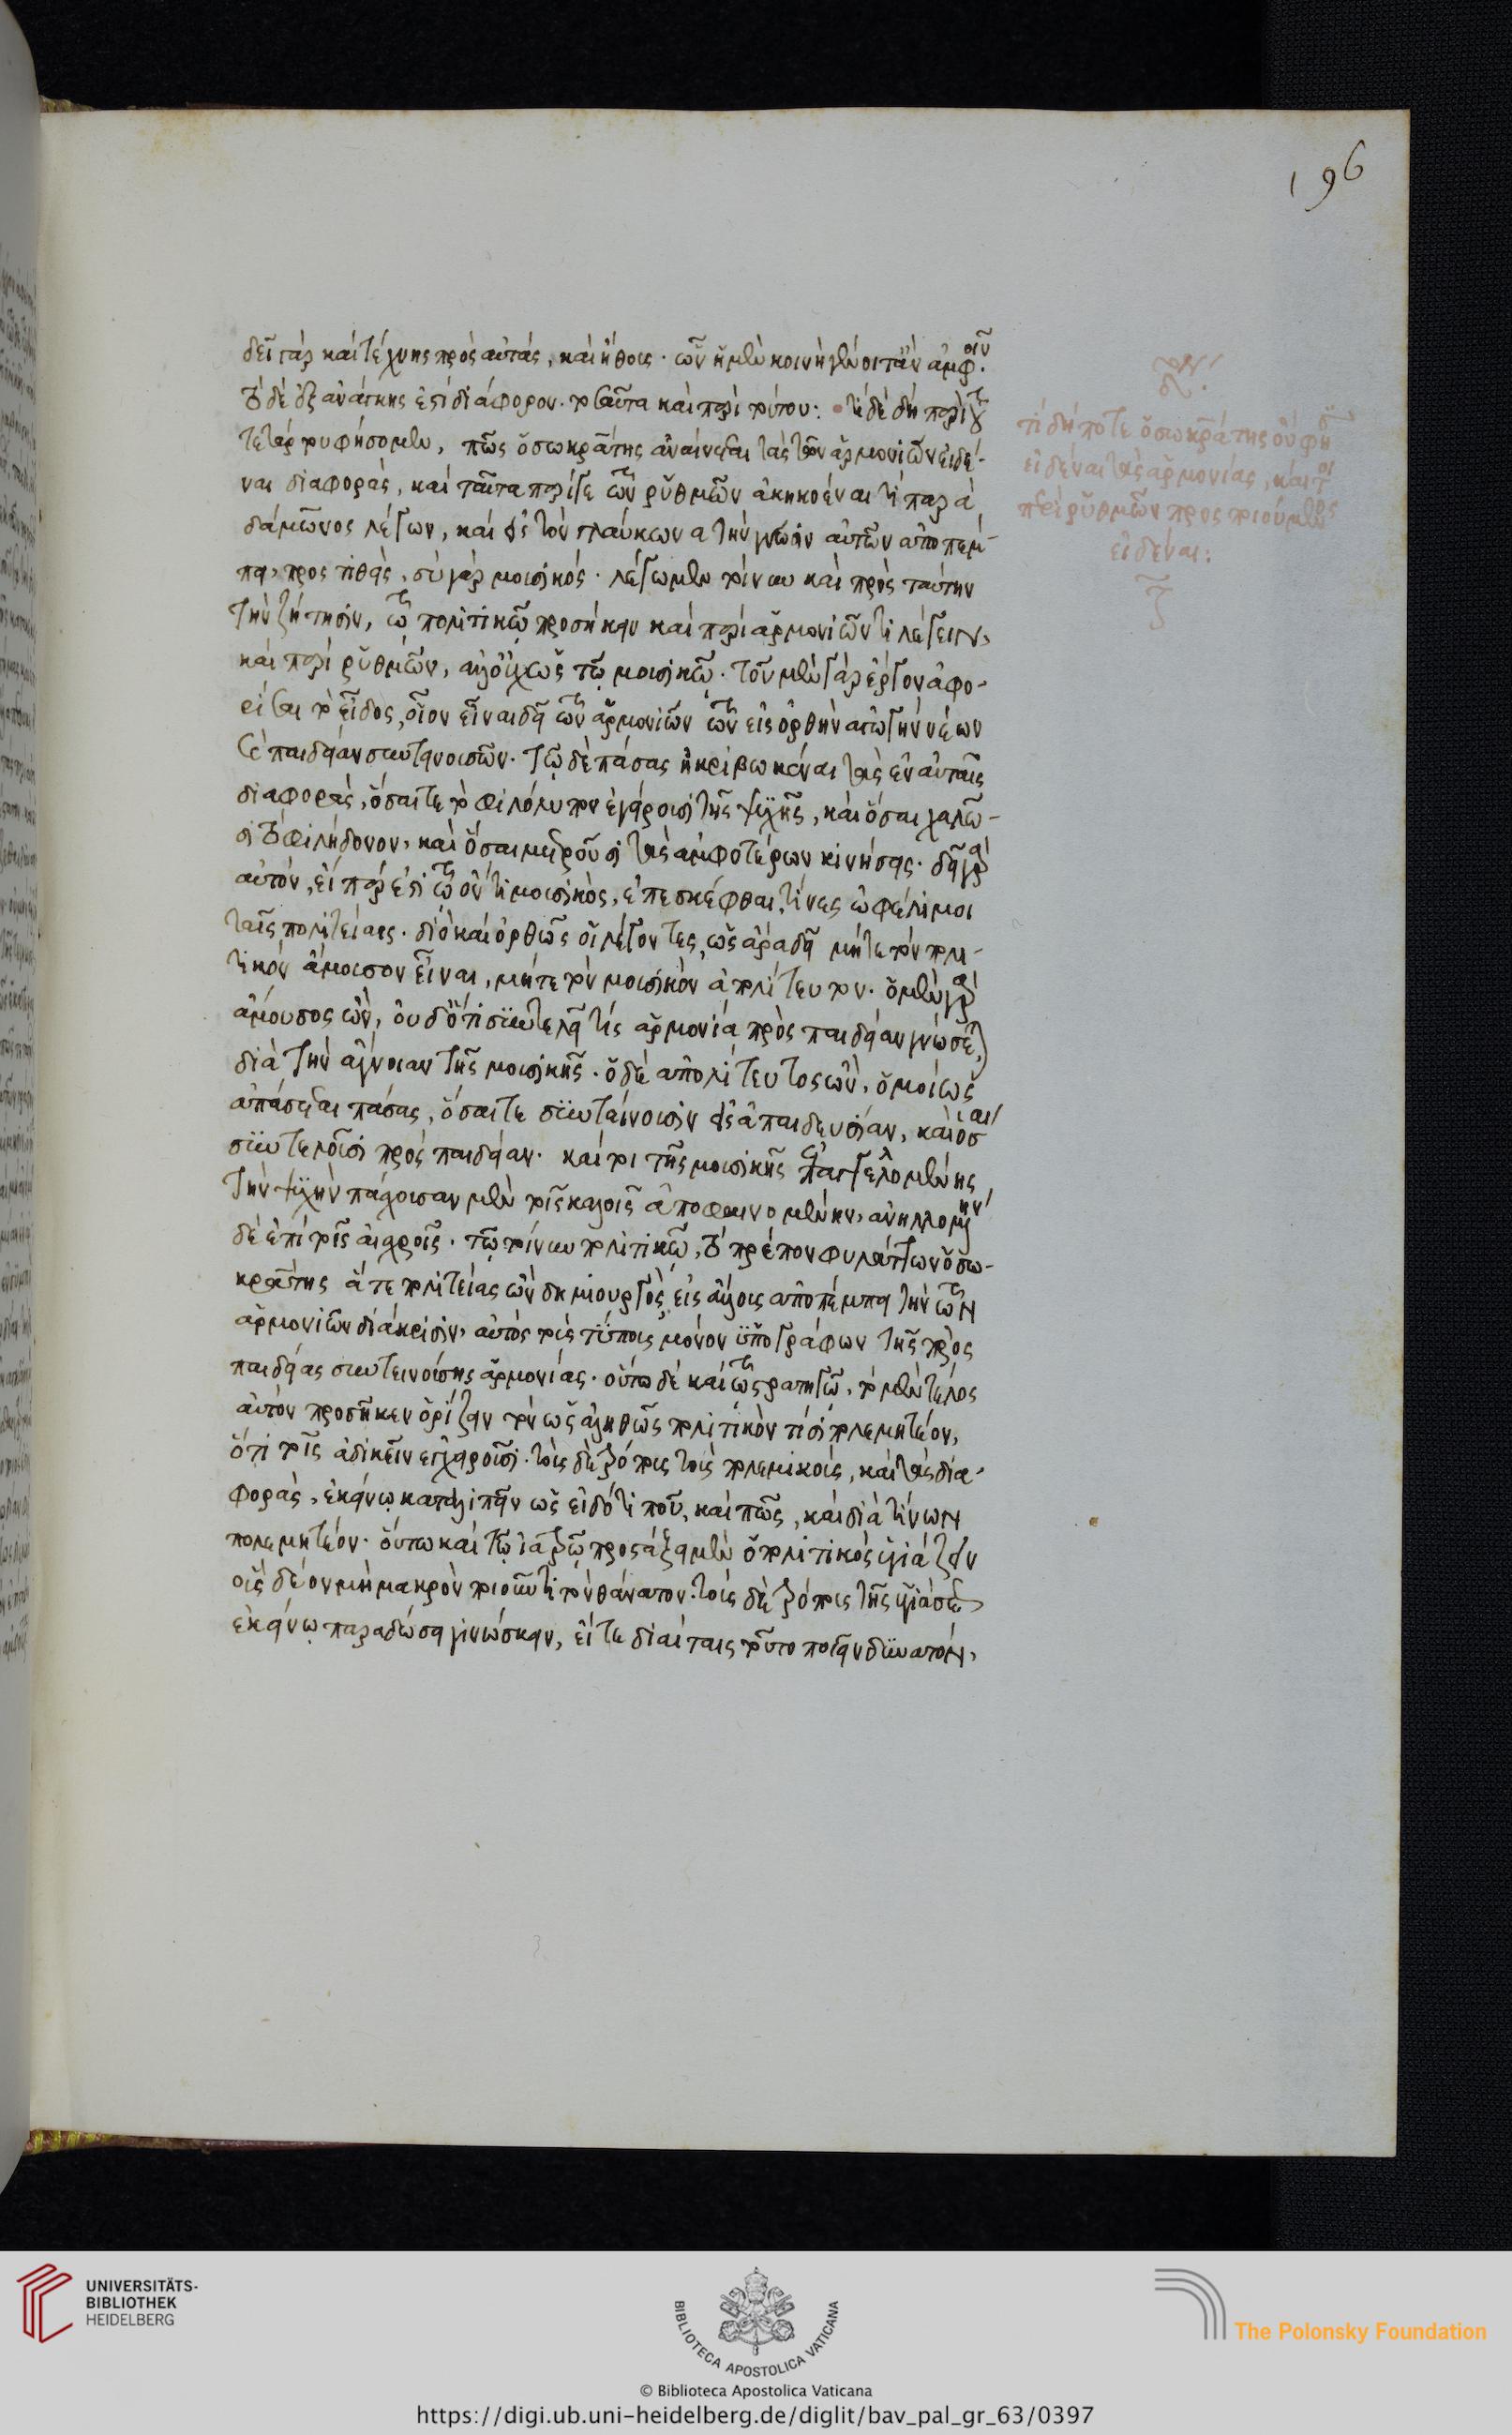 δεῖ γὰρ καὶ τέχνης πρὸς αὐτάς, καὶ ἤθους· ὧν ἡ μὲν κοινὴ γένοιτ' ἂν ἀμφοῖν.
τὸ δὲ ἐξ ἀνάγκης ἐστὶ διάφορον· τοσαῦτα καὶ περὶ τούτου: τί δὲ δὴ περὶ τοῦ
τετάρτου φήσομεν, πῶς ὁ σωκράτης ἀναίνεται τὰς τῶν ἁρμονιῶν εἰδέ-
ναι διαφοράς, καὶ ταῦτα περί γε τῶν ῥυθμῶν ἀκηκοέναι τι παρὰ
δάμωνος λέγων, καὶ εἰς τὸν γλαύκωνα τὴν γνῶσιν αὐτῶν ἀποπέμ-
πει, προστιθείς, σὺ γὰρ μουσικός· λέγωμεν τοίνυν καὶ πρὸς ταύτην
τὴν ζήτησιν, τῷ πολιτικῷ προσήκειν καὶ περὶ ἁρμονιῶν τι λέγειν,
καὶ περὶ ῥυθμῶν, ἀλλ' οὐχ ὡς τῷ μουσικῷ· τοῦ μὲν γὰρ ἔργον ἀφο-
ρίσαι τὸ εἶδος, οἷον εἶναι δεῖ τῶν ἁρμονιῶν τῶν εἰς ὀρθὴν ἀγωγὴν νέων
καὶ παιδείαν συντεινουσῶν· τῷ δὲ πάσας ἠκριβωκέναι τὰς ἐν αὐταῖς
διαφοράς, ὅσαι τε τὸ φιλόλυπον ἐγείρουσι τῆς ψυχῆς, καὶ ὅσαι χαλῶ-
σι τὸ φιλήδονον, καὶ ὅσαι μετροῦσι τὰς ἀμφοτέρων κινήσεις· δεῖ γὰρ
αὐτόν, εἴπερ ἐστὶ τῷ ὄντι μουσικός, ἐπεσκέφθαι, τίνες ὠφέλιμοι
ταῖς πολιτείαις· διὸ καὶ ὀρθῶς οἱ λέγοντες, ὡς ἄρα δεῖ μήτε τὸν πολι-
τικὸν ἄμουσον εἶναι, μήτε τὸν μουσικὸν ἀπολίτευτον· ὁ μὲν γὰρ
ἄμουσος ὤν, οὐδ' ὅ τι συντελεῖ τις ἁρμονία πρὸς παιδείαν γνώσεται,
διὰ τὴν ἄγνοιαν τῆς μουσικῆς· ὁ δὲ ἀπολίτευτος ὤν, ὁμοίως
ἀσπάσεται πάσας, ὅσαι τε συντείνουσιν εἰς ἀπαιδευσίαν, καὶ ὅσαι
συντελοῦσι πρὸς παιδείαν· καίτοι τῆς μουσικῆς ἐπαγγελλομένης
τὴν ψυχὴν πάσχουσαν μὲν τοῖς καλοῖς ἀποφαινομένην, ἀνιωμένην
δὲ ἐπὶ τοῖς αἰσχροῖς· τῷ τοίνυν πολιτικῷ, τὸ πρέπον φυλάττων ὁ σω-
κράτης ἅτε πολιτείας ὢν δημιουργός, εἰς ἄλλους ἀποπέμπει τὴν τῶν
ἁρμονιῶν διάκρισιν, αὐτὸς τοὺς τύπους μόνον ὑπογράφων τῆς πρὸς
παιδείας συντεινούσης ἁρμονίας· οὕτω δὲ καὶ τῷ στρατηγῷ, τὸ μὲν τέλος
αὐτὸν προσῆκεν ὁρίζειν τὸν ὡς ἀληθῶς πολιτικὸν τίσι πολεμητέον,
ὅτι τοῖς ἀδικεῖν ἐπιχειροῦσι· τοὺς δὲ τρόπους τοὺς πολεμικούς, καὶ τὰς δια-
φοράς, ἐκείνῳ καταλιπεῖν ὡς εἰδότι ποῦ, καὶ πῶς, καὶ διὰ τίνων
πολεμητέον· οὕτω καὶ τῷ ἰατρῷ προστάξει μὲν ὁ πολιτικὸς ὑγιάζειν
οἷς δέον μὴ μακρὸν ποιοῦντι τὸν θάνατον· τοὺς δὲ τρόπους τῆς ὑγιάσεως
ἐκείνῳ παραδώσει γινώσκειν, εἴτε διαίταις τοῦτο ποιεῖν δυνατόν,
τί δήποτε ὁ σωκράτης οὔ φησιν
εἰδέναι τὰς ἁρμονίας, καίτοι
περὶ ῥυθμῶν προσποιούμενος
εἰδέναι:
196
UNIVERSITÄTS-
BIBLIOTHEK
HEIDELBERG
BIBLIOTECA APOSTOLICA VATICANA
The Polonsky Foundation
© Biblioteca Apostolica Vaticana
https://digi.ub.uni-heidelberg.de/diglit/bav_pal_gr_63/0397